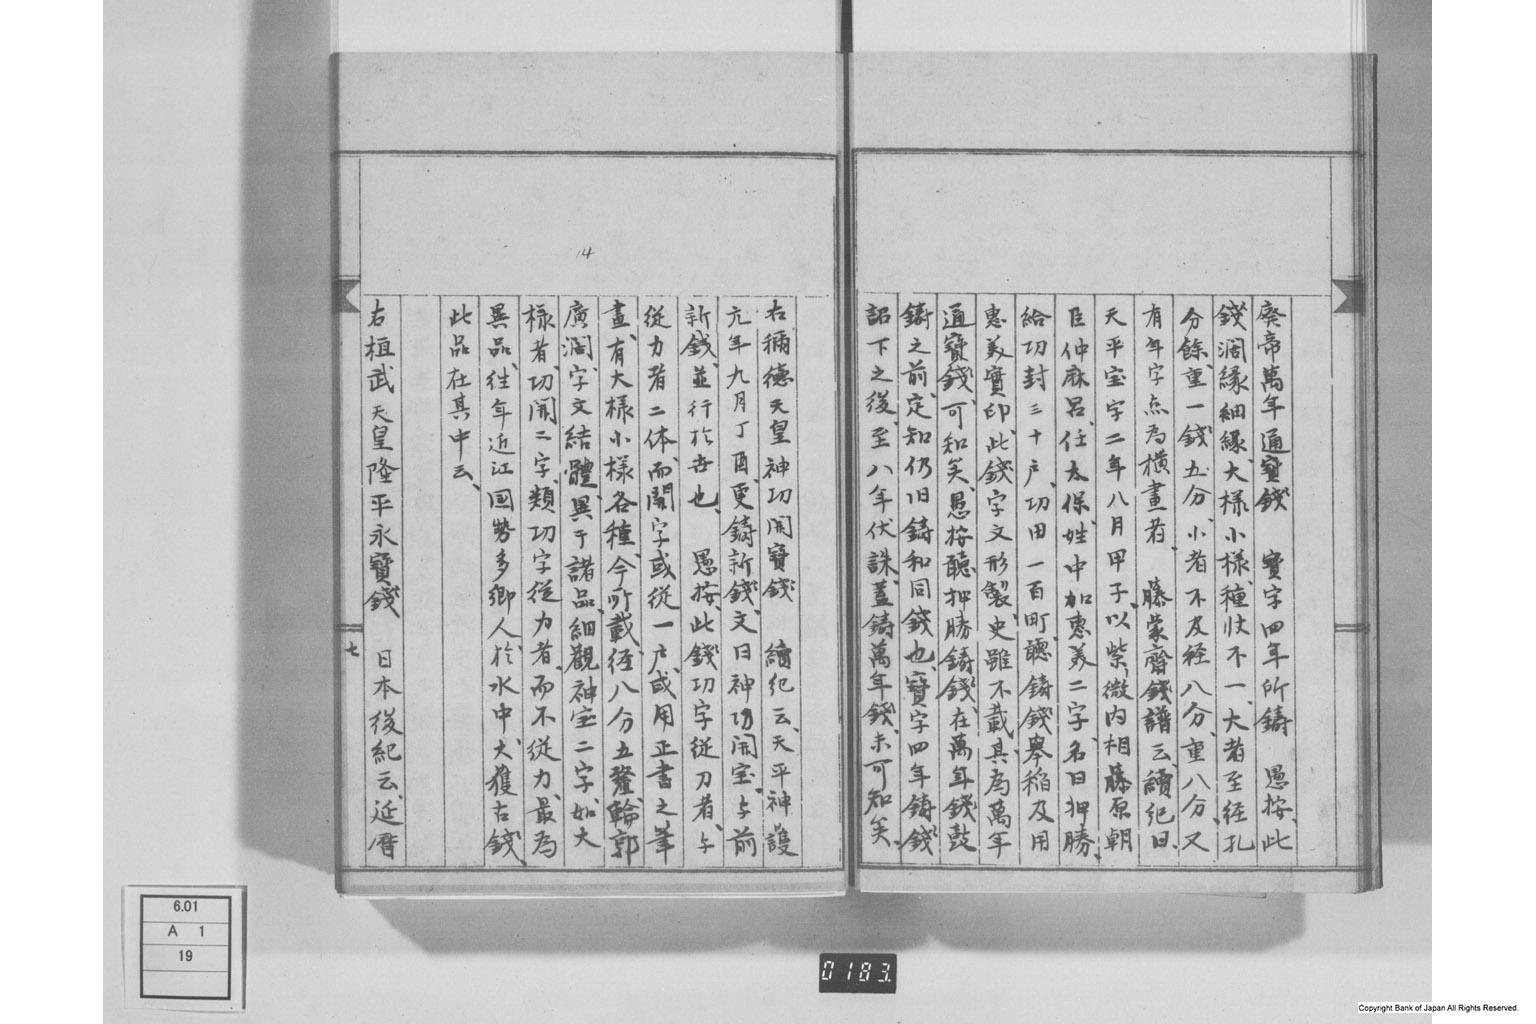 廃帝萬年通寳錢　寳字四年所鋳　愚按、此
錢濶縁細縁、大様小様、種状不一、大者至経孔
分餘、重一錢五分、小者不及経八分、重八分、又
有年字点為横畫者、　藤蒙齋錢譜云續紀曰、
天平宝字二年八月甲子、以紫微内相藤原朝
臣仲麻呂、任太保、姓中加惠美二字、名曰押勝、
給功封三十戸、功田一百町、聴鋳錢挙稲及用
惠美實印、此錢字文形製、史雖不載、其為萬年
通寳錢、可知矣、愚按聴押勝鋳錢、在萬年錢鼓
鋳之前、定知仍旧鋳和同錢也、寳字四年鋳錢
詔下之後、至八年伏誅、蓋鋳萬年錢、未可知矣、
右稱德天皇神功開寳錢　續紀云、天平神護
元年九月丁酉、更鋳新錢、文曰神功開宝、与前
新錢、並行於世也、　愚按、此錢功字従刀者、与
従力者二体、而開字或従一戸、或用正書之筆
畫、有大様小様各種、今所載、径八分五釐、輪郭
廣濶、字文結體、異于諸品、細觀神宝二字、如大
様者、功開二字、類功字従力者、而不従力、最為
異品、往年近江国勢多郷人、於水中、大獲古錢、
此品在其中云、
右桓武天皇隆平永寳錢　日本後紀云、延暦
七
14
6.01
A 1
19
0183
Copyright Bank of Japan All Rights Reserved.